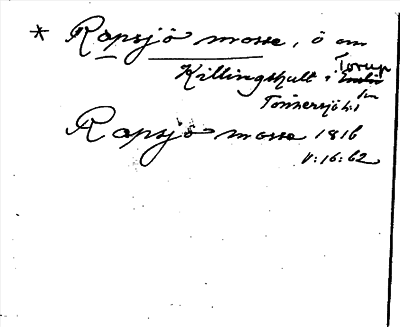 * Rapsjö mosse, ö om
Killinghult i Torup
sn
Tönnersjö hd
Rapsjö mosse 1816
V:16:62